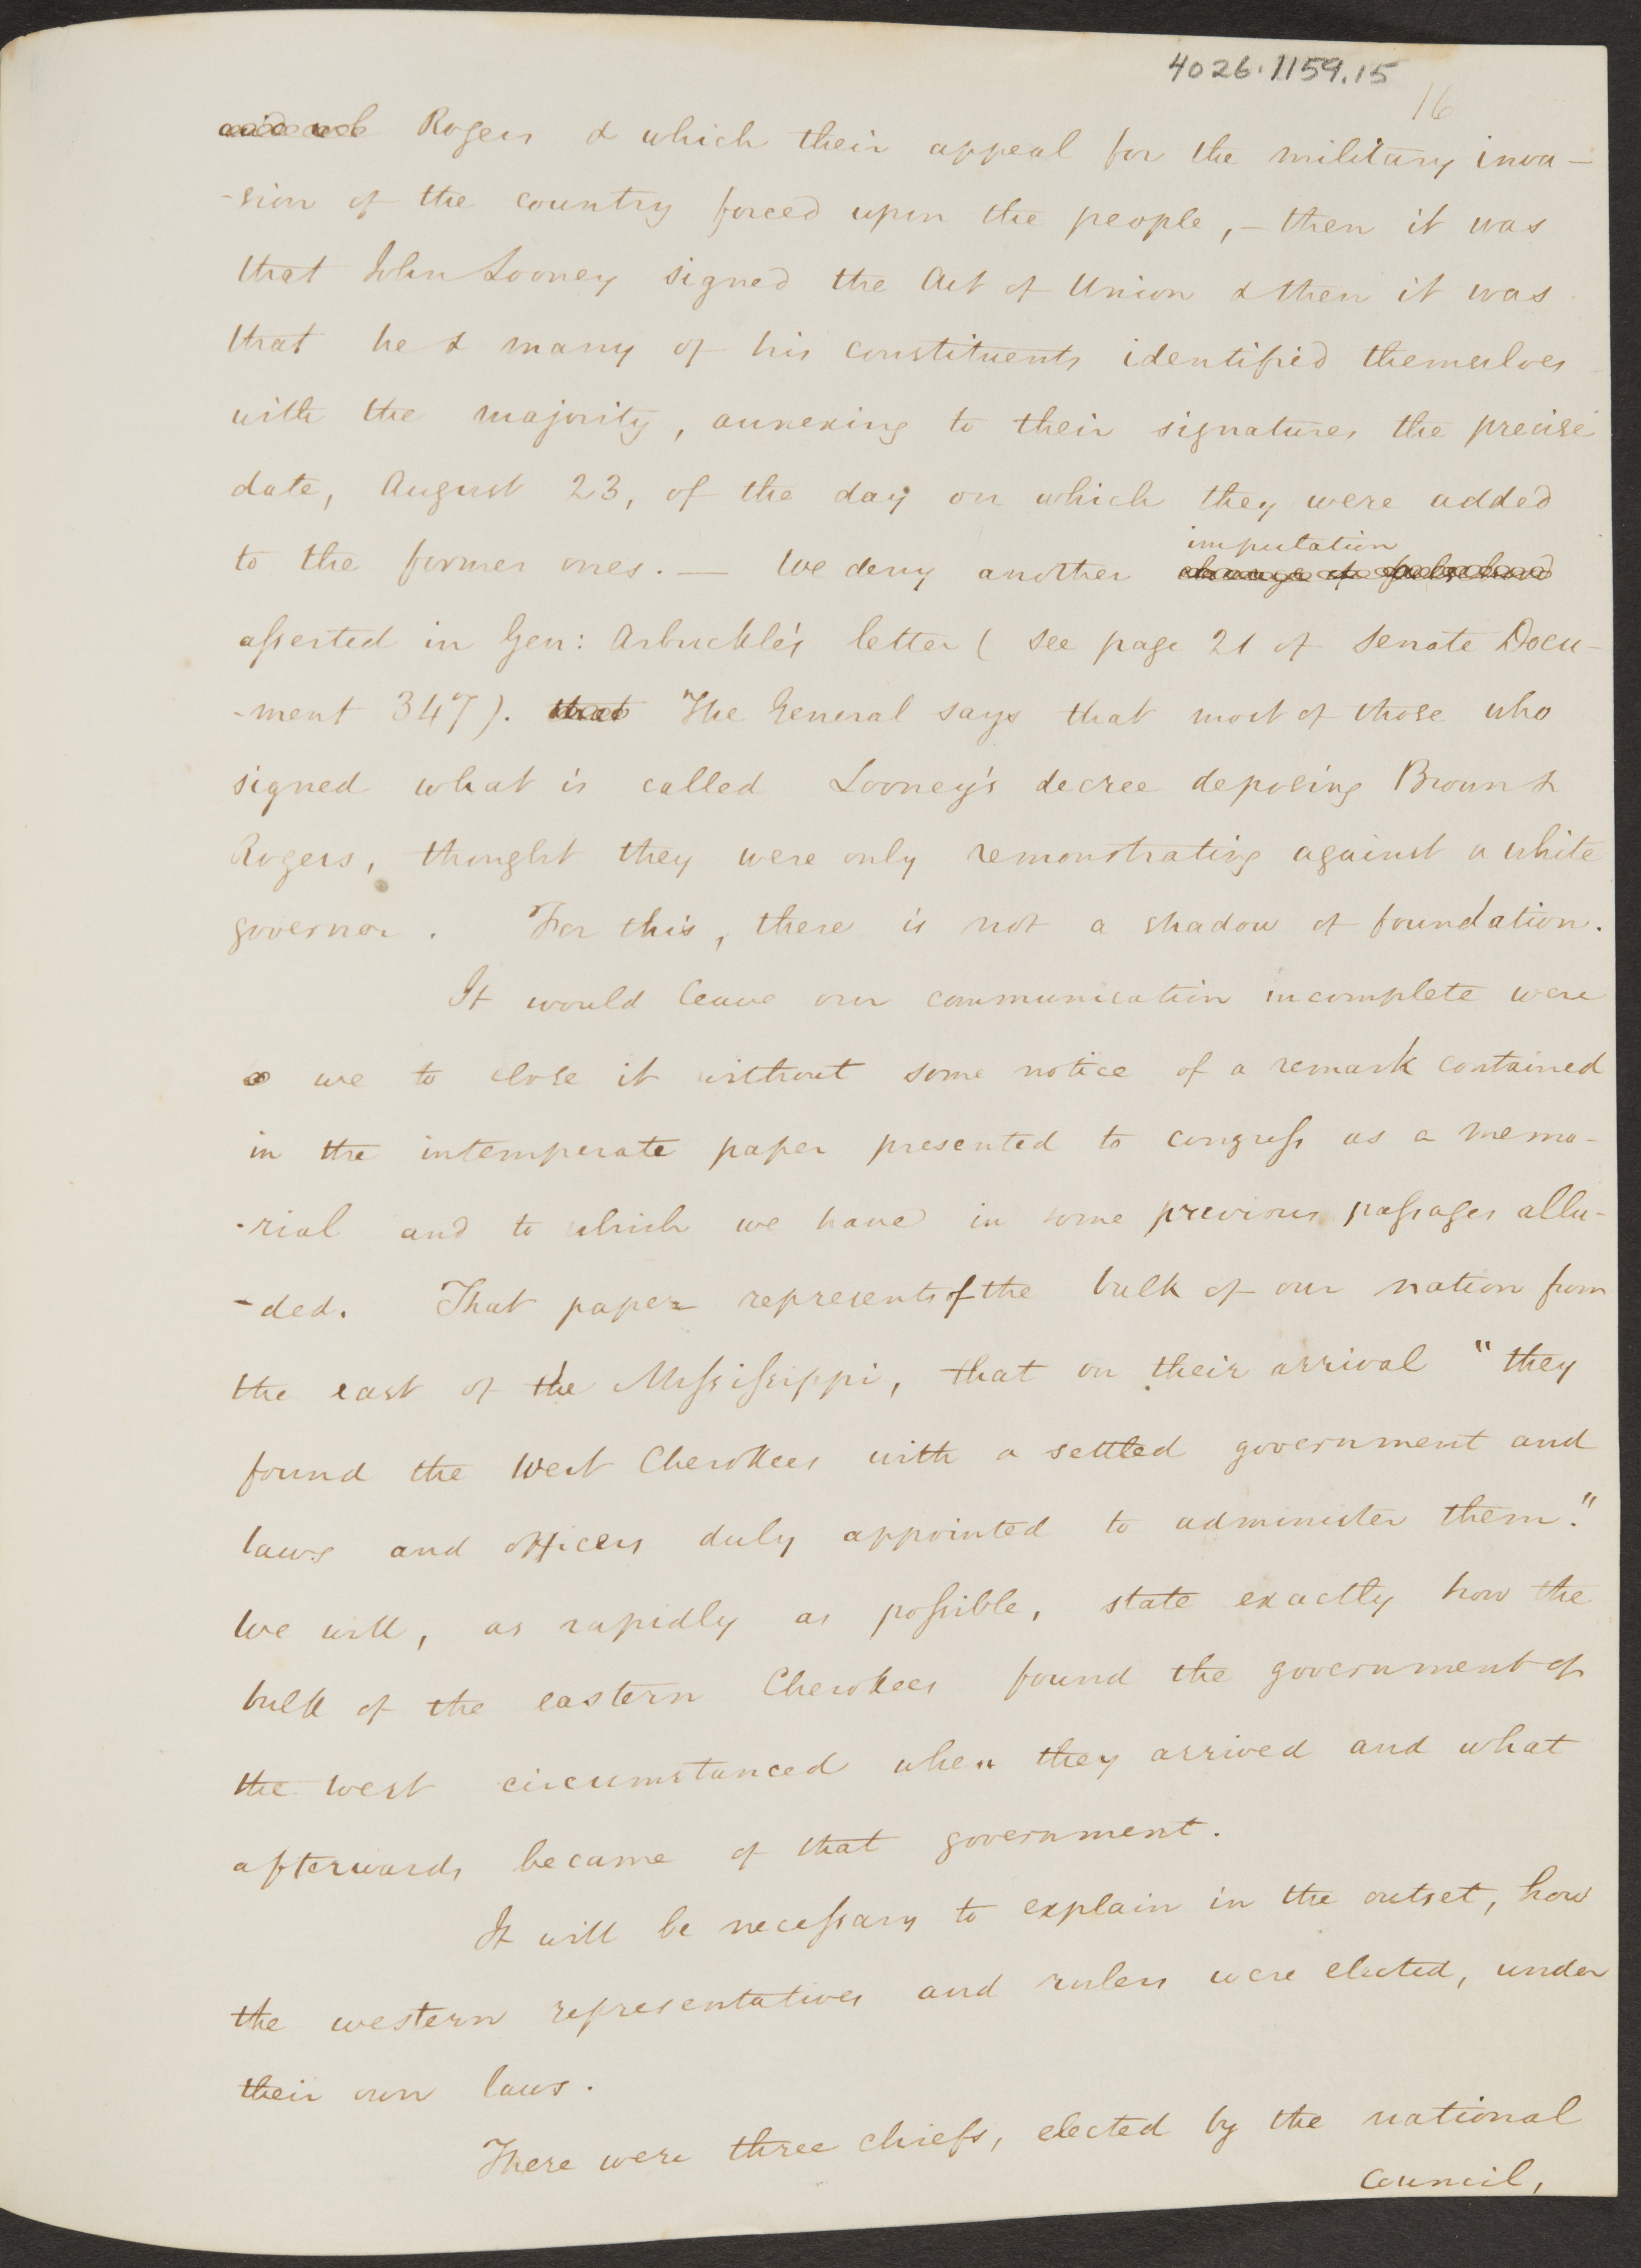 4026.1159.15
16
Rogers & which their appeal for the military inva-
-sion of the country forced upon the people, - then it was
that John Looney signed the Act of Union & then it was
that he & many of his constituents identified themselves
with the majority, annexing to their signatures the precise
date, August 23, of the day on which they were added
imputation
to the former ones. — We deny another charge of falsehood
asserted in Gen: Arbuckle's letter ( see page 21 of Senate Docu-
-ment 347). that The General says that most of those who
signed what is called Looney's decree deposing Brown &
Rogers, thought they were only remonstrating against a white
governor. For this, there is not a shadow of foundation.
It would leave our communication incomplete were
we to close it without some notice of a remark contained
in the intemperate paper presented to congress as a memo-
-rial and to which we have in some previous passages allu-
-ded. That paper represents of the bulk of our nation from
the east of the Mississippi, that on their arrival "they
found the West Cherokees with a settled government and
laws and officers duly appointed to administer them."
We will, as rapidly as possible, state exactly how the
bulk of the eastern Cherokees found the government of
the west circumstanced when they arrived and what
afterwards became of that government.
It will be necessary to explain in the outset, how
the western representatives and rulers were elected, under
their own laws.
There were three chiefs, elected by the national
council,